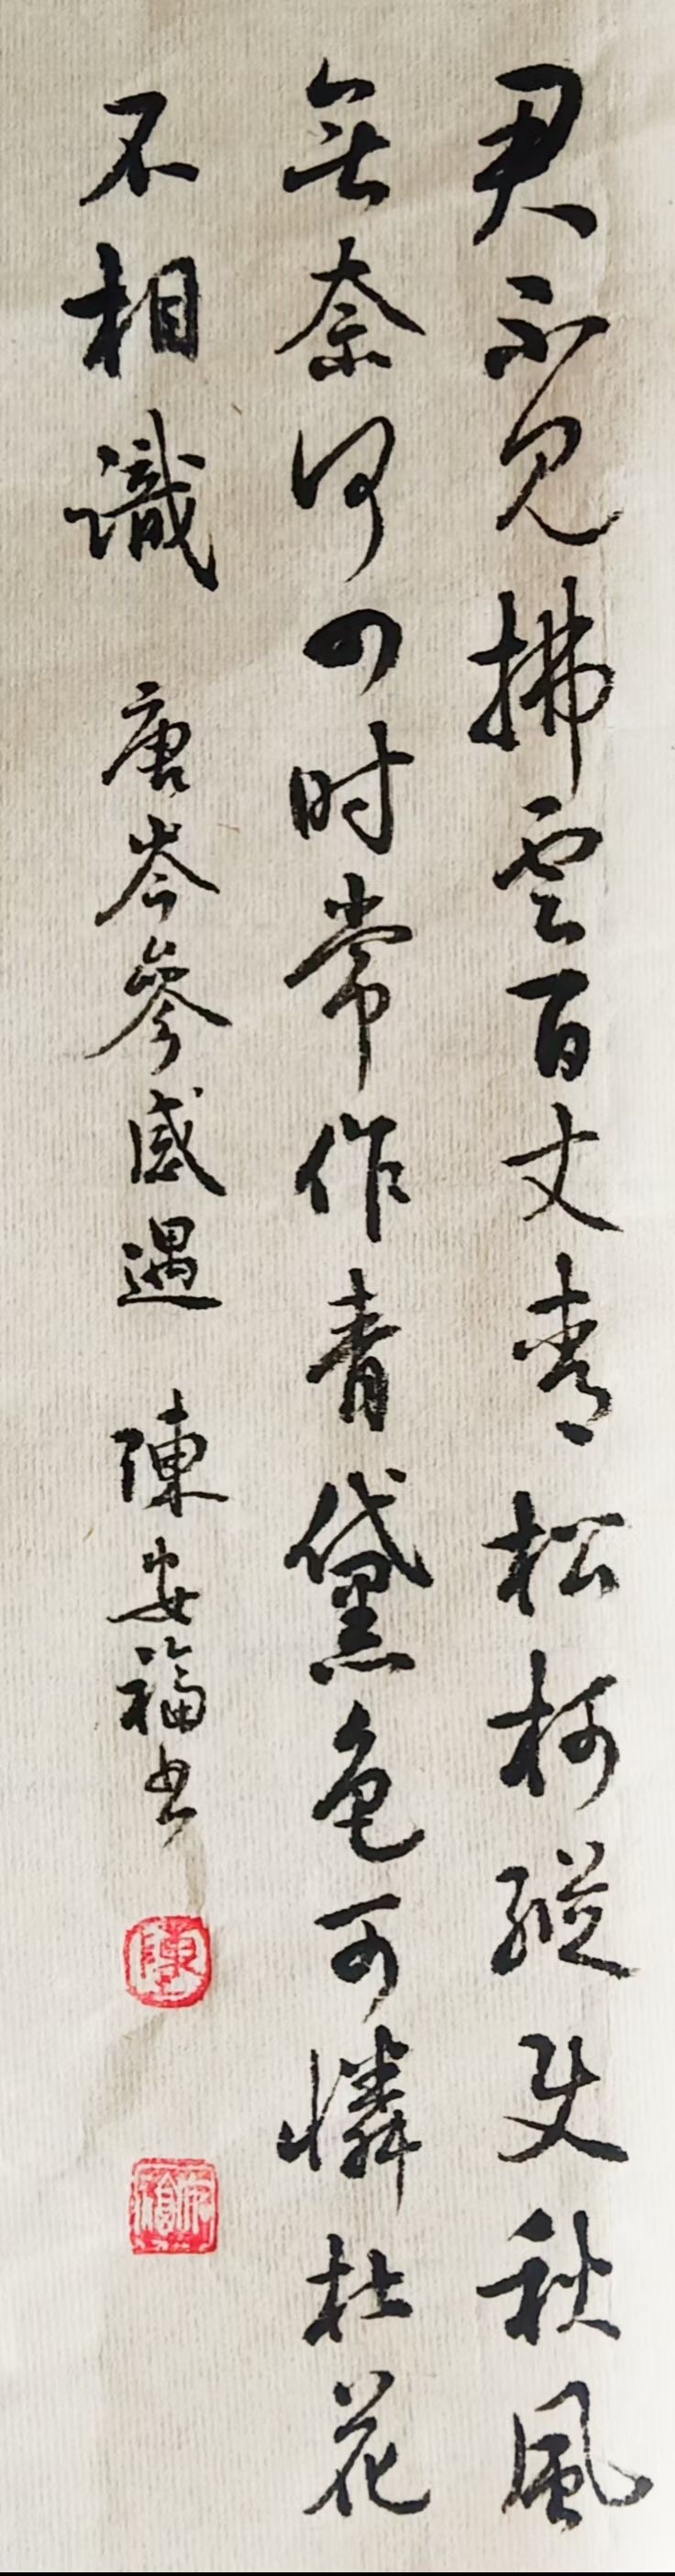 君不見拂雲百丈青松柯縱使秋風
無奈何四时常作青黛色可憐杜花
不相識 唐岑參感遇 陳安福书
陳